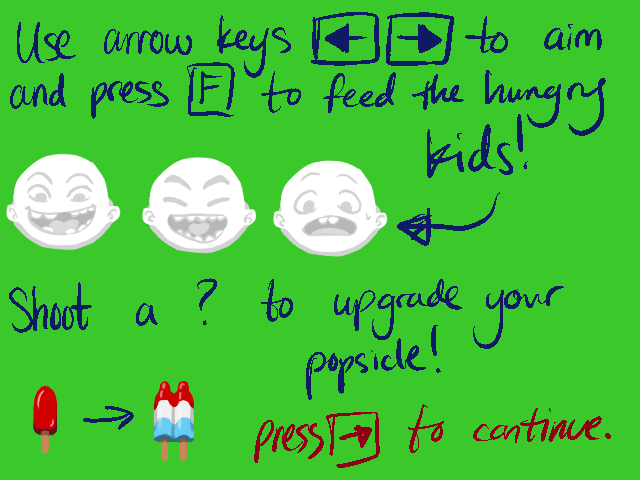 Use arrow keys ← → to aim
and press F to feed the hungry
kids!
Shoot a ? to upgrade your
popsicle!
press → to continue.